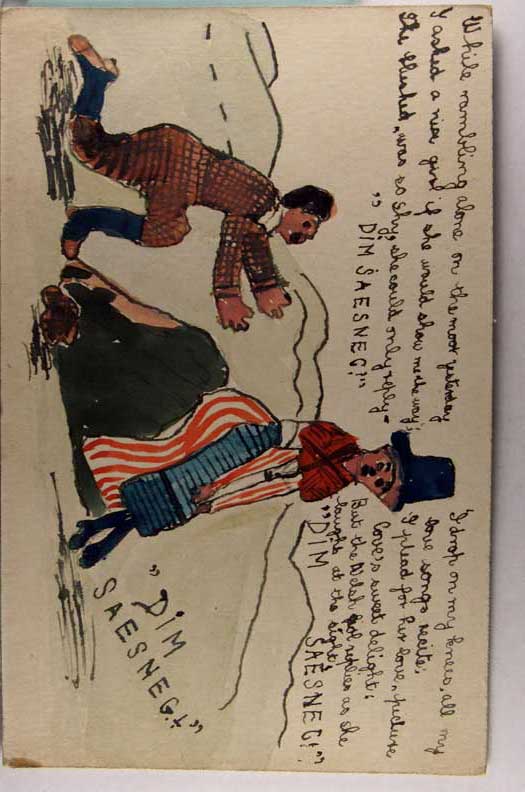 While rambling alone on the moor yesterday
I asked a nice girl if she would show me the way;
She blushed, was so shy, she could only reply -
" DIM SAESNEG!"
I drop on my knees, all my
love songs recite;
I plead for her love, picture
love's sweet delight;
But the Welsh girl replies as she
laughs at the sight,
"DIM SAESNEG!"
" DIM
SAESNEG! "